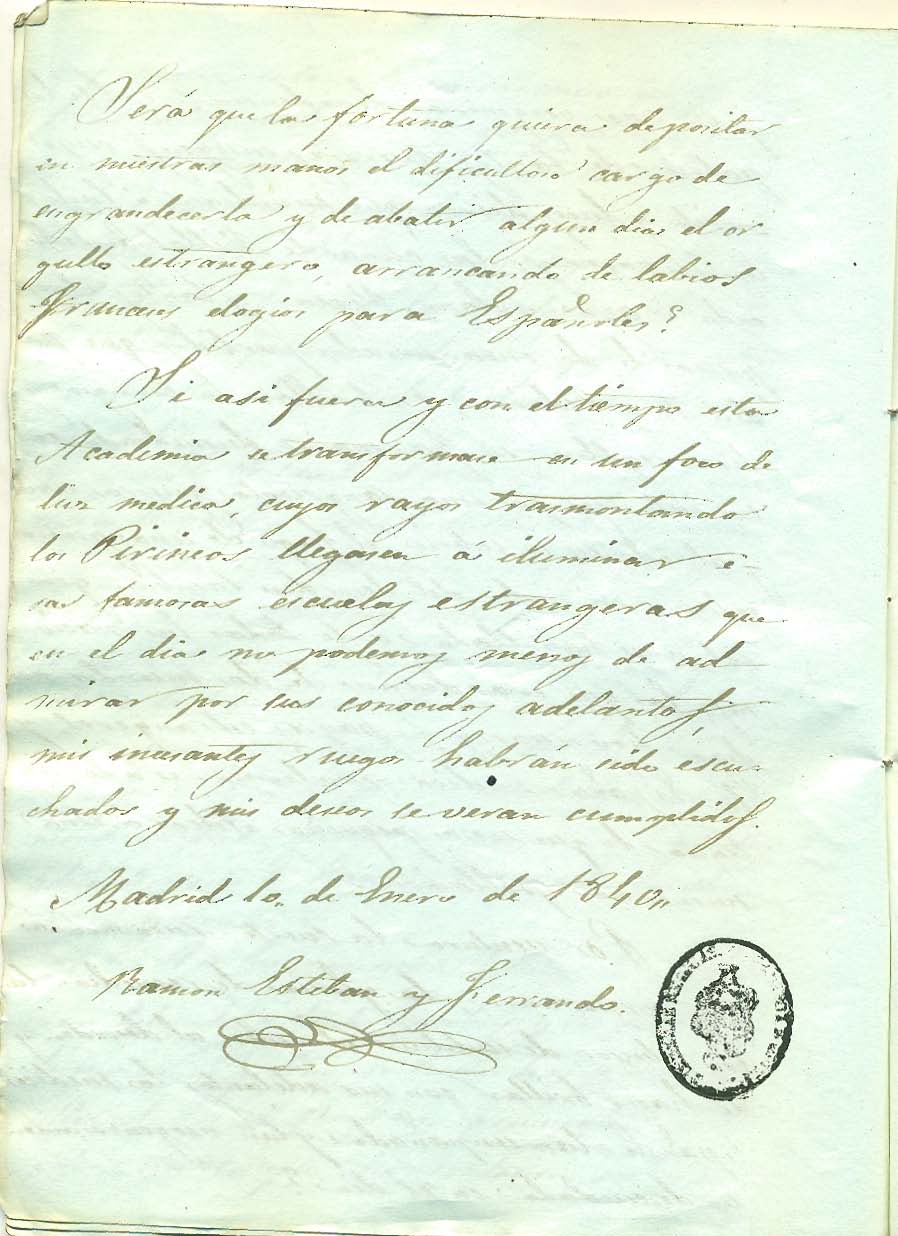 Será que la fortuna quiera depositar
en nuestras manos el dificultoso cargo de
engrandecerla y de abatir algun dia el or-
gullo estrangero, arrancando de labios
Franceses elogios para Españoles?
Si asi fuera y con el tiempo esta
Academia se transformase en un foco de
luz medica, cuyos rayos trasmontando
los Pirineos llegasen á iluminar e-
sas famosas escuelas estrangeras que
en el dia no podemos menos de ad
mirar por sus conocidos adelantos,
mis incesantes ruegos habrán sido escu-
chados y mis deseos se veran cumplidos.
Madrid 10 de Enero de 1840,,
Ramon Esteban y Ferrando.